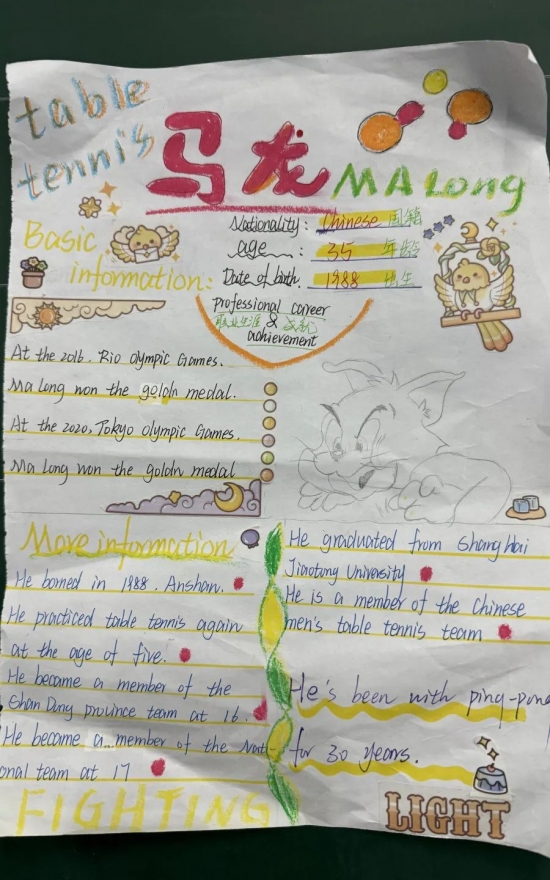 table
tennis
马龙 MA Long
Basic
information:
Nationality: Chinese 国籍
age: 35 年龄
Date of birth. 1988
professional career
职业生涯 & 成就
achievement
At the 2016. Rio olympic Games.
Ma Long won the goldn medal.
At the 2020. Tokyo olympic Games.
Ma Long won the goldn medal
More information
He borned in 1988. Anshan.
He practiced table tennis again
at the age of five.
He became a member of the
Shan Dong province team at 16.
He became a...member of the Nati-
onal team at 17
FIGHTING
He graduated from Shang hai
Jiaotong University
He is a member of the Chinese
men's table tennis team
He's been with ping-pong
for 30 years.
LIGHT